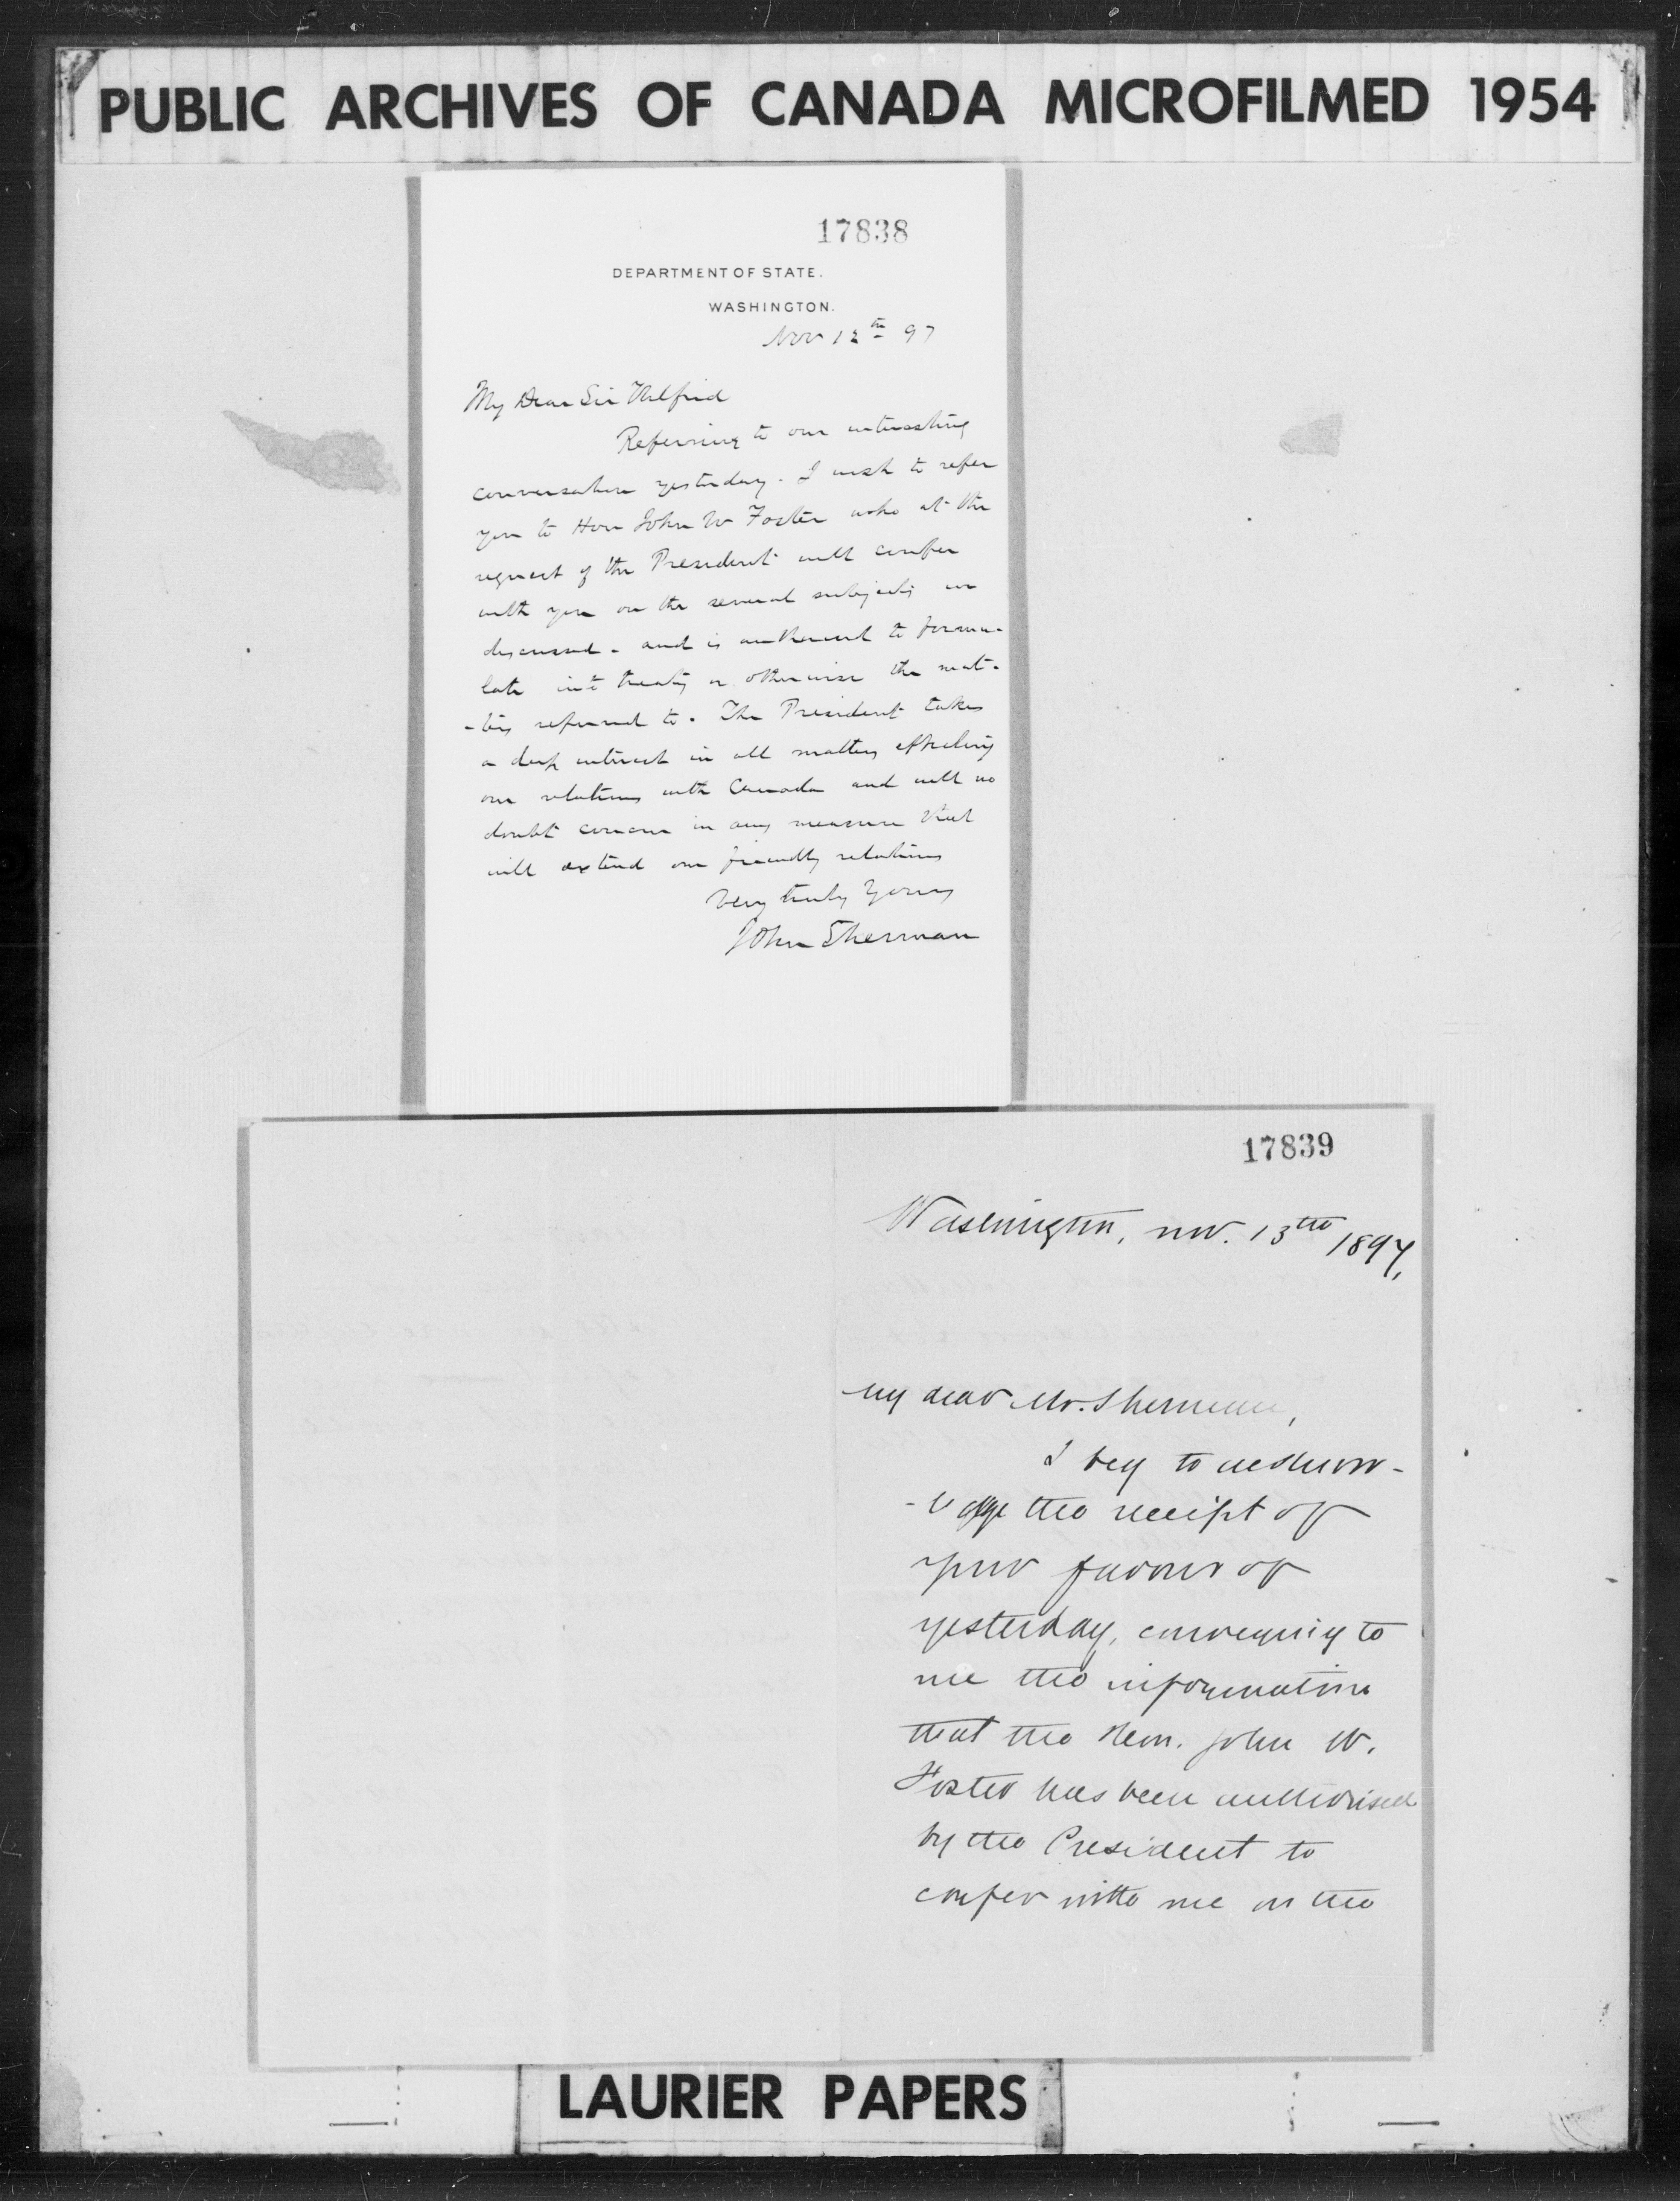 PUBLIC ARCHIVES OF CANADA MICROFILMED 1954
17838
DEPARTMENT OF STATE.
WASHINGTON.
Nov 12th 97
My Dear Sir Wilfrid
Referring to our interesting
conversation yesterday. I wish to refer
you to Hon John W Foster who at the
request of the President will confer
with you on the several subjects we
discussed - and is authorized to formu-
late into treaty or otherwise the mat-
-ters referred to. The President takes
a deep interest in all matters effecting
our relations with Canada and will no
doubt concur in any measure that
will extend our friendly relations
Very truly Yours
John Sherman
17839
Washington, Nov. 13th 1897.
My dear Mr. Sherman,
I beg to acknow-
-ledge the receipt of
your favour of
yesterday, conveying to
me the information
that the Hon. John W.
Foster has been authorised
by the President to
confer with me on the
LAURIER PAPERS